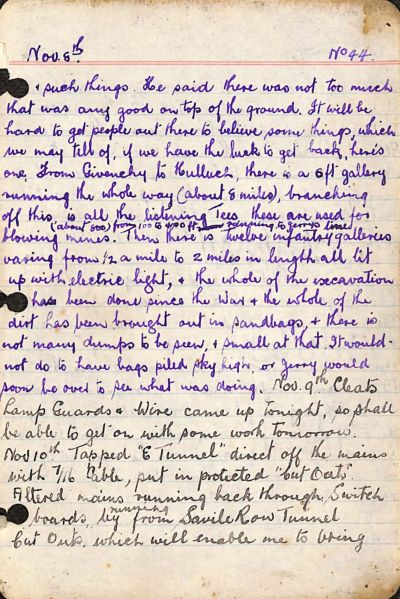 Nov. 8th. No 44.
& such things. He said there was not too much
that was any good on top of the ground. It will be
hard to get people out there to believe some things, which
we may tell of, if we have the luck to get back, here's
one, From Givenchy to Hulluch, there is a 6ft gallery
running the whole way (about 8 miles), branching
off this, is all the listening Tees these are used for
(about 600) from 100 to 400 ft running to Jerrys lines
blowing mines. Then there is twelve infantry galleries
varing from 1/2 a mile to 2 miles in length all lit
up with electric light, & the whole of the excavation
has been done since the War & the whole of the
dirt has been brought out in sandbags, & there is
not many dumps to be seen, & small at that. It would-
not do to have bags piled sky high, or Jerry would
soon be over to see what was doing. Nov. 9th Cleats
Lamp Guards & Wire came up tonight, so shall
be able to get on with some work tomorrow.
Nov 10th Tapped "E Tunnel" direct off the mains
with 7/16 Cable, put in protected "Cut Outs".
Altered mains running back through Switch
boards, by running from Savile Row Tunnel
Cut Outs, which will enable me to bring